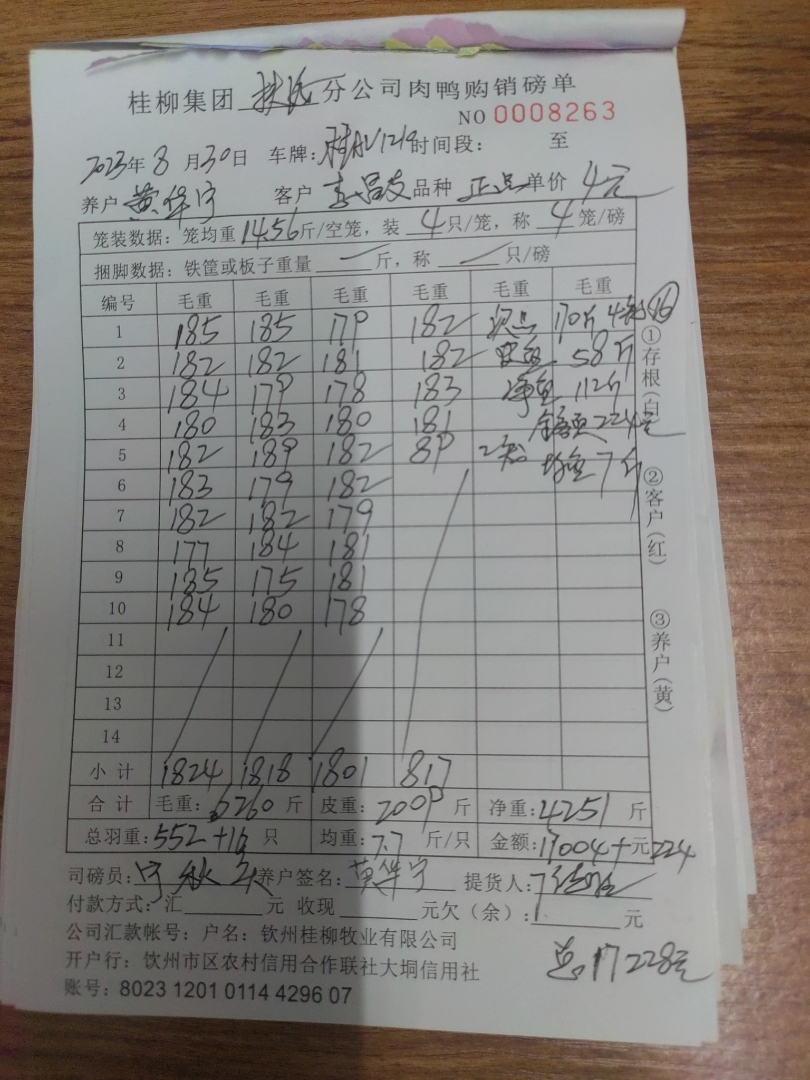 桂柳集团 分公司肉鸭购销磅单
NO 0008263
2023年 8 月 30 日 车牌: 1219 时间段: 至
养户 黄华宁 客户 李昌友 品种 正品 单价 4元
笼装数据: 笼均重 14.56 斤/空笼, 装 4 只/笼, 称 4 笼/磅
捆脚数据: 铁筐或板子重量 斤, 称 只/磅
编号 毛重 毛重 毛重 毛重 毛重 毛重
1 185 185 179 182 次品 170斤 4 16
2 182 182 181 182 58斤
3 184 179 178 183 净重 112斤
4 180 183 180 181 金额 224元
5 182 189 182 89 2 均重 7斤
6 183 179 182
7 182 182 179
8 177 184 181
9 185 175 181
10 184 180 178
11
12
13
14
小计 1824 1818 1801 817
合计 毛重: 6260 斤 皮重: 2009 斤 净重: 4251 斤
总羽重: 552+16 只 均重: 7.7 斤/只 金额: 17004+元 224
司磅员: 养户签名: 黄华宁 提货人:
付款方式: 汇 元 收现 元欠(余): 元
公司汇款帐号: 户名: 钦州桂柳牧业有限公司
开户行: 钦州市区农村信用合作联社大垌信用社
总17228元
账号: 8023 1201 0114 4296 07
①存根(白) ②客户(红) ③养户(黄)